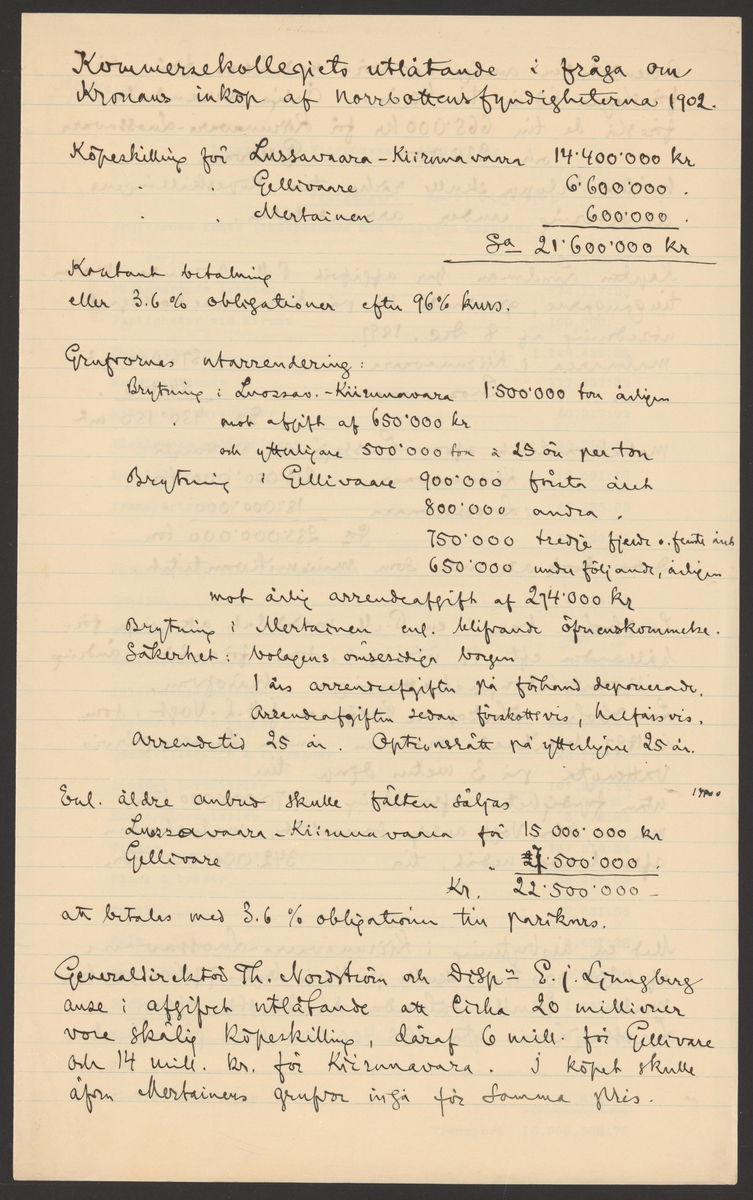 Kommersekollegiets utlåtande i fråga om
Kronans inköp af Norrbottensfyndigheterna 1902.
Köpeskilling för Lussavaara-Kiirunavaara 14'400'000 kr
" " Gellivaare 6'600'000 "
" " Mertainen 600'000 "
Sa 21'600'000 kr
Kontant betalning
eller 3.6 % obligationer efter 96% kurs.
Grufvornas utarrendering:
Brytning i Luossav.-Kiirunavara 1'500'000 ton årligen
" mot afgift af 650'000 kr
och ytterligare 500'000 ton à 25 öre per ton
Brytning i Gellivaare 900'000 första året
800'000 andra "
750'000 tredje fjerde o. femte året
650'000 under följande, årligen
mot årlig arrendeafgift af 274'000 kr
Brytning i Mertainen enl. blifvande öfverenskommelse.
Säkerhet: bolagens ömsesidiga borgen
1 års arrendeafgifter på förhand deponerade.
Arrendeafgiften sedan förskottsvis, halfårsvis.
Arrendetid 25 år. Optionsrätt på ytterligare 25 år.
Enl. äldre anbud skulle fälten säljas
Lussavaara-Kiirunavaara för 15 000'000 kr
Gellivare " 7'500'000 "
Kr. 22'500'000 –
att betalas med 3.6 % obligationer till parikurs.
Generaldirektör Th. Nordström och Dispn E. J. Ljungberg
anse i afgifvet utlåtande att cirka 20 millioner
vore skälig köpeskilling, däraf 6 mill. för Gellivare
och 14 mill. kr. för Kiirunavara. I köpet skulle
äfven Mertainens grufvor ingå för samma pris.